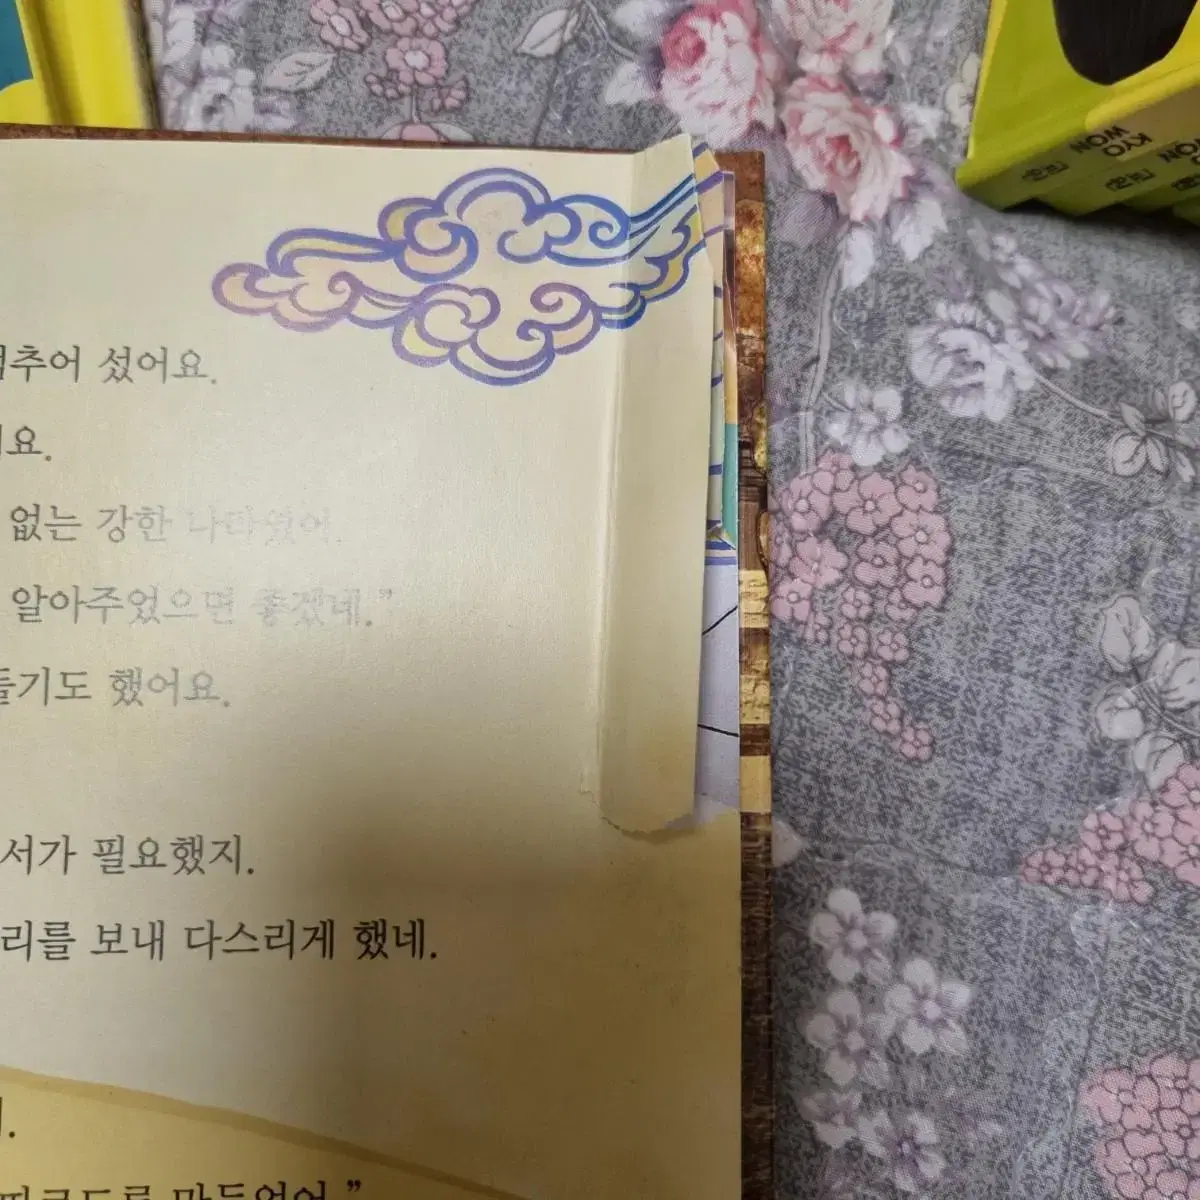 KYO WON
교원
추어 섰어요.
요.
없는 강한 나라였어.
알아주었으면 좋겠네.”
들기도 했어요.
서가 필요했지.
리를 보내 다스리게 했네.